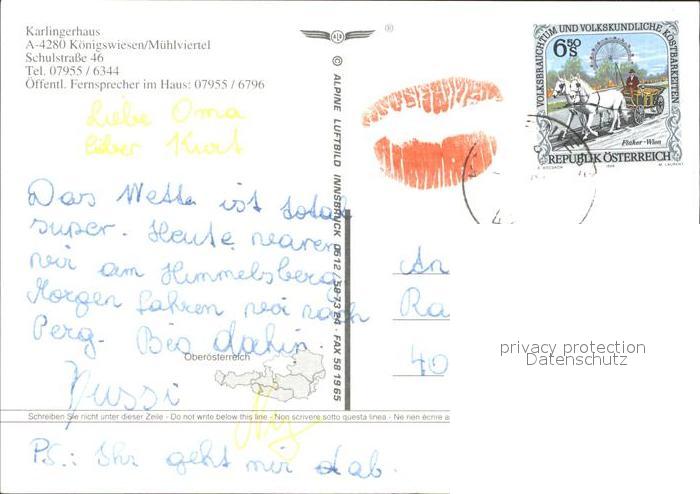 Karlingerhaus
A-4280 Königswiesen/Mühlviertel
Schulstraße 46
Tel. 07955 / 6344
Öffentl. Fernsprecher im Haus: 07955 / 6796
®
© ALPINE LUFTBILD INNSBRUCK 0512 / 58 73 24 · FAX 58 19 65
VOLKSBRAUCHTUM UND VOLKSKUNDLICHE KOSTBARKEITEN
6,50
S
Fiaker-Wien
REPUBLIK ÖSTERREICH
M. LAURENT
Liebe Oma
lieber Kurt
Das Wetter ist total
super. Heute waren
wir am Himmelsberg
Morgen fahren wir nach
Perg. Bis dahin.
Bussi
An
Ra
40
privacy protection
Datenschutz
Oberösterreich
Schreiben Sie nicht unter dieser Zeile - Do not write below this line - Non scrivere sotto questa linea - Ne rien écrire a
PS.: Ihr geht mir ab.